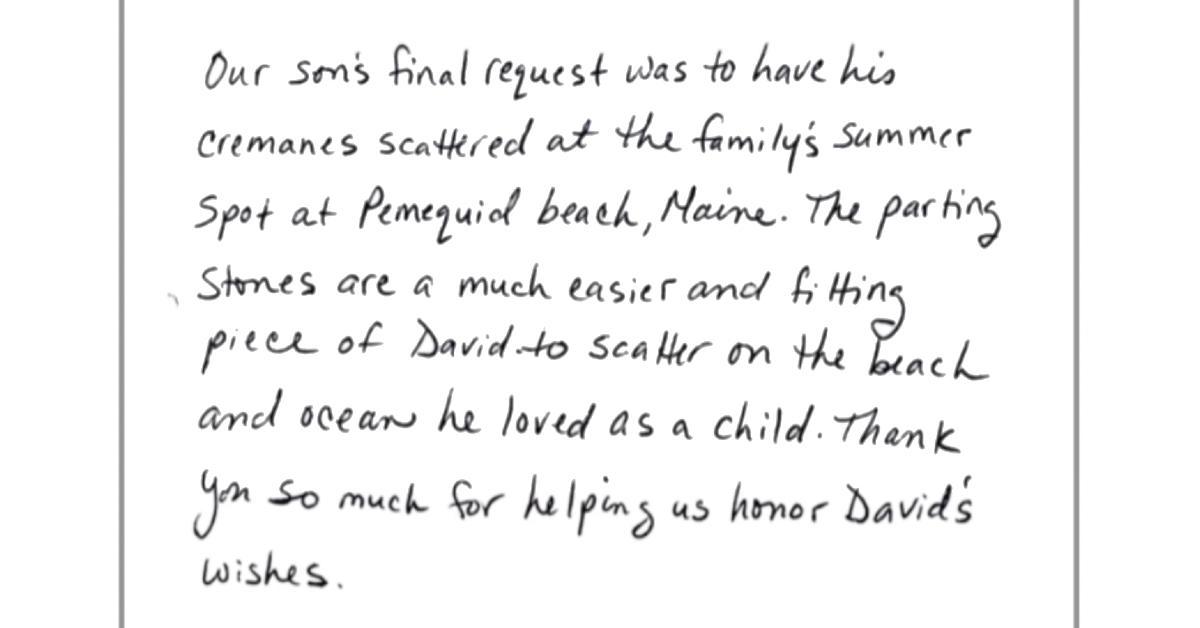 Our son's final request was to have his
cremanes scattered at the family's summer
Spot at Pemequid beach, Maine. The parting
Stones are a much easier and fitting
piece of David to scatter on the beach
and ocean he loved as a child. Thank
you so much for helping us honor David's
wishes.